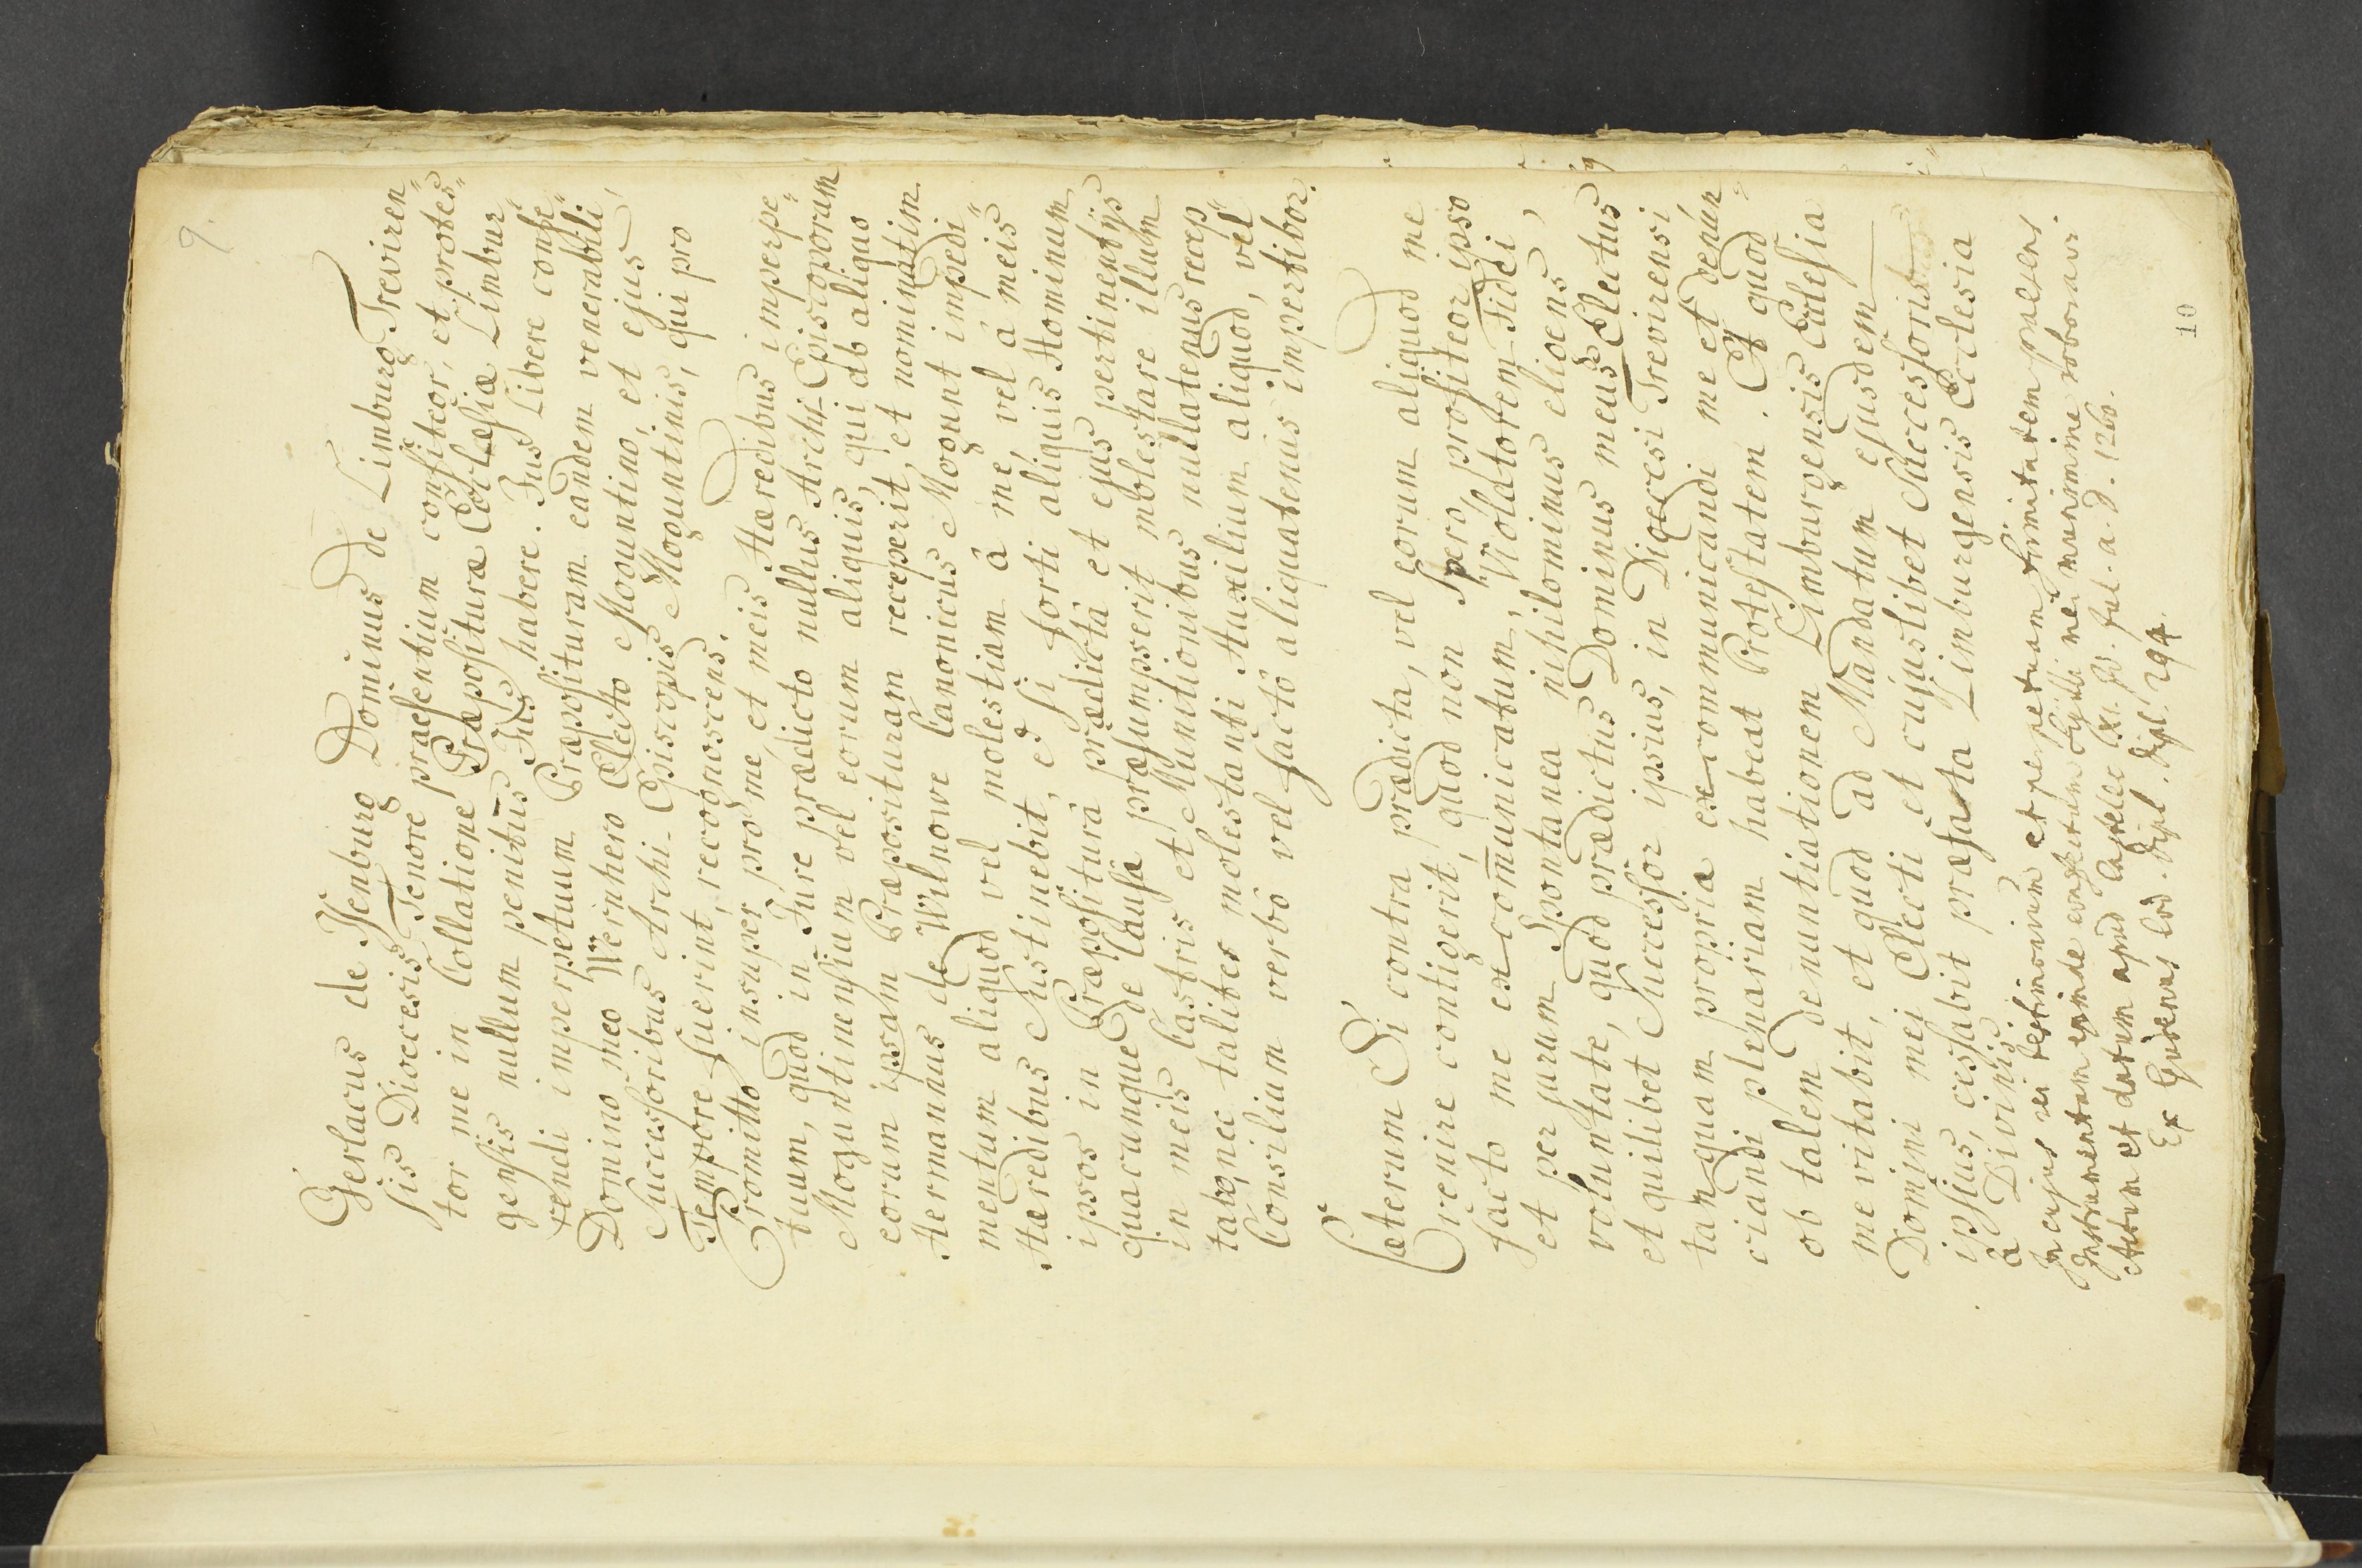 9.
Gerlacus de Ysenburg Dominus de Limburg Treviren„
sis Dioecesis Tenore praesentium confiteor, et protes„
tor me in Collatione Præposituræ Ecclesiæ Limbur„
gensis nullum penitus Jus habere. Jus Libere confe„
rendi imperpetuum Præposituram eandem venerabili
Domino meo Wernhero Electo Moguntino, et ejus
Successoribus Archi-Episcopis Moguntinis, qui pro
Tempore fuerint, recognoscens.
Promitto insuper pro me, et meis Hæredibus imperpe„
tuum, quod in Jure prædicto nullus Archi-Episcoporum
Moguntinensium vel eorum aliquis, qui ab aliquo
eorum ipsam Præposituram receperit, et nominatim
Hermannus de Wilnowe Canonicus Mogunt impedi„
mentum aliquod vel molestiam â me, vel â meis
Hæredibus sustinebit, et si forti aliquis Hominum
ipsos in Præpositurâ prædictâ et ejus pertinentijs
quacunque de Causâ præsumpserit molestare illum
in meis Castris et Munitionibus nullatenus recep„
tabo, nec taliter molestanti Auxilium aliquod, vel
Consilium verbô vel factô aliquatenus impertibor.
Cæterum Si contra prædicta, vel eorum aliquod me
venire contigerit, quod non Spero, profiteor ipso
facto me excom̄unicatum, Violatorem Fidei,
et perjurum Spontanea nihilominus eligens
voluntate, quod prædictus Dominus meus Electus
et quilibet Successor ipsius, in Diœcesi Trevirensi
tanquam propria excommunicandi me et denun„
ciandi plenariam habeat Protestatem. Et quod
ob talem denuntiationem Limburgensis Ecclesia
me vitabit, et quod ad Mandatum ejusdem
Domini mei Electi et cujuslibet Successoris
ipsius, cessabit præfata Limburgensis Ecclesia
â Divinis
In cujus rei testimonium et perpetuam firmitatem præsens
Instrumentum exinde confectum Sigilli mei munimine roboravi.
Actum et datum apud Castell IX. Id. Jul. a. d. 1260.
Ex Gudenus Cod. Dipl. 294.
10